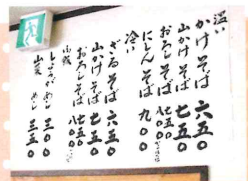 温い
かけそば 六五〇
山かけそば 七五〇
おろしそば 七五〇
にしんそば 九〇〇
冷い
ざるそば 六五〇
山かけそば 七五〇
おろしそば 八五〇
八〇〇
めし 三五〇